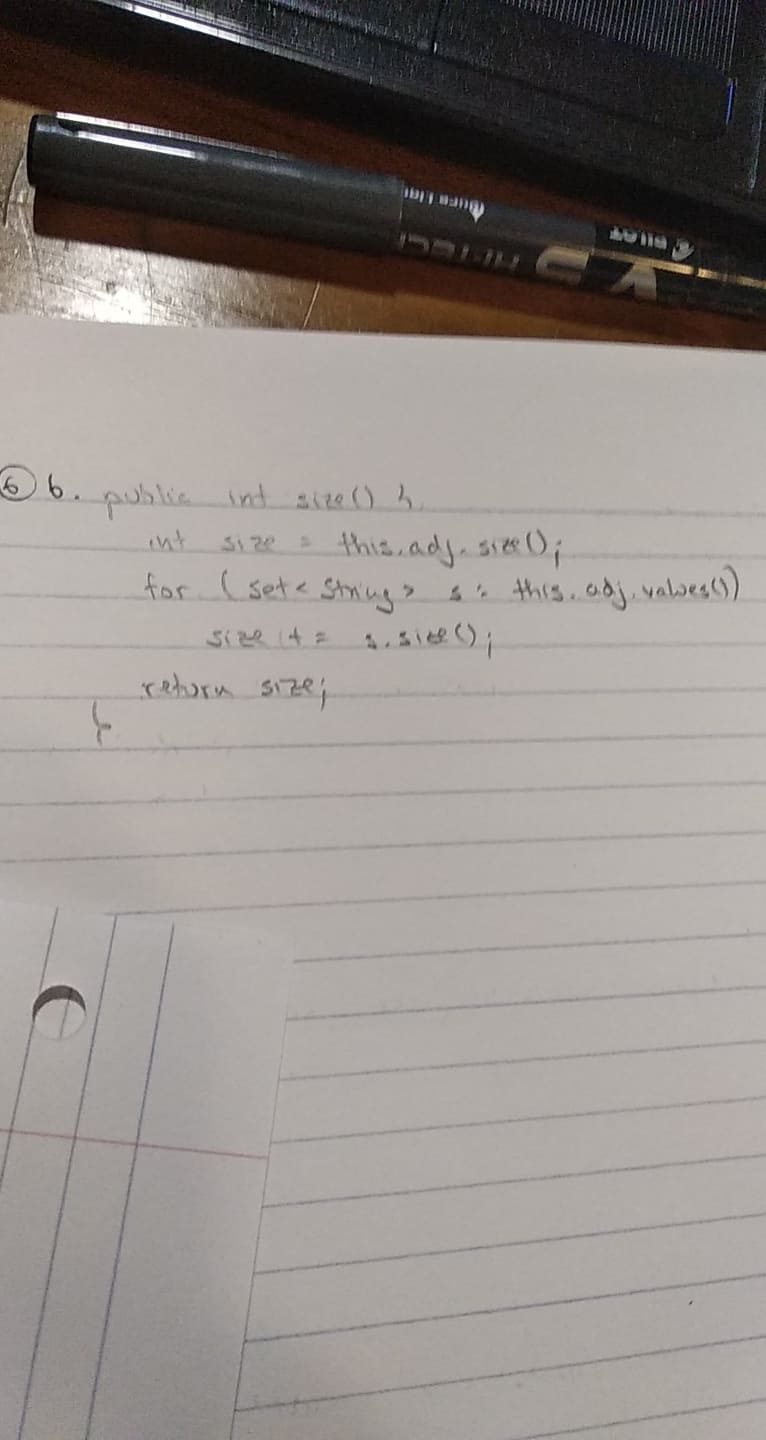 PILOT
Pure Liquid
V5 HI-TEC
⑥ 6. public int size() {
int size = this.adj.size();
for (set<String> s : this.adj.values())
size += s.size();
return size;
}